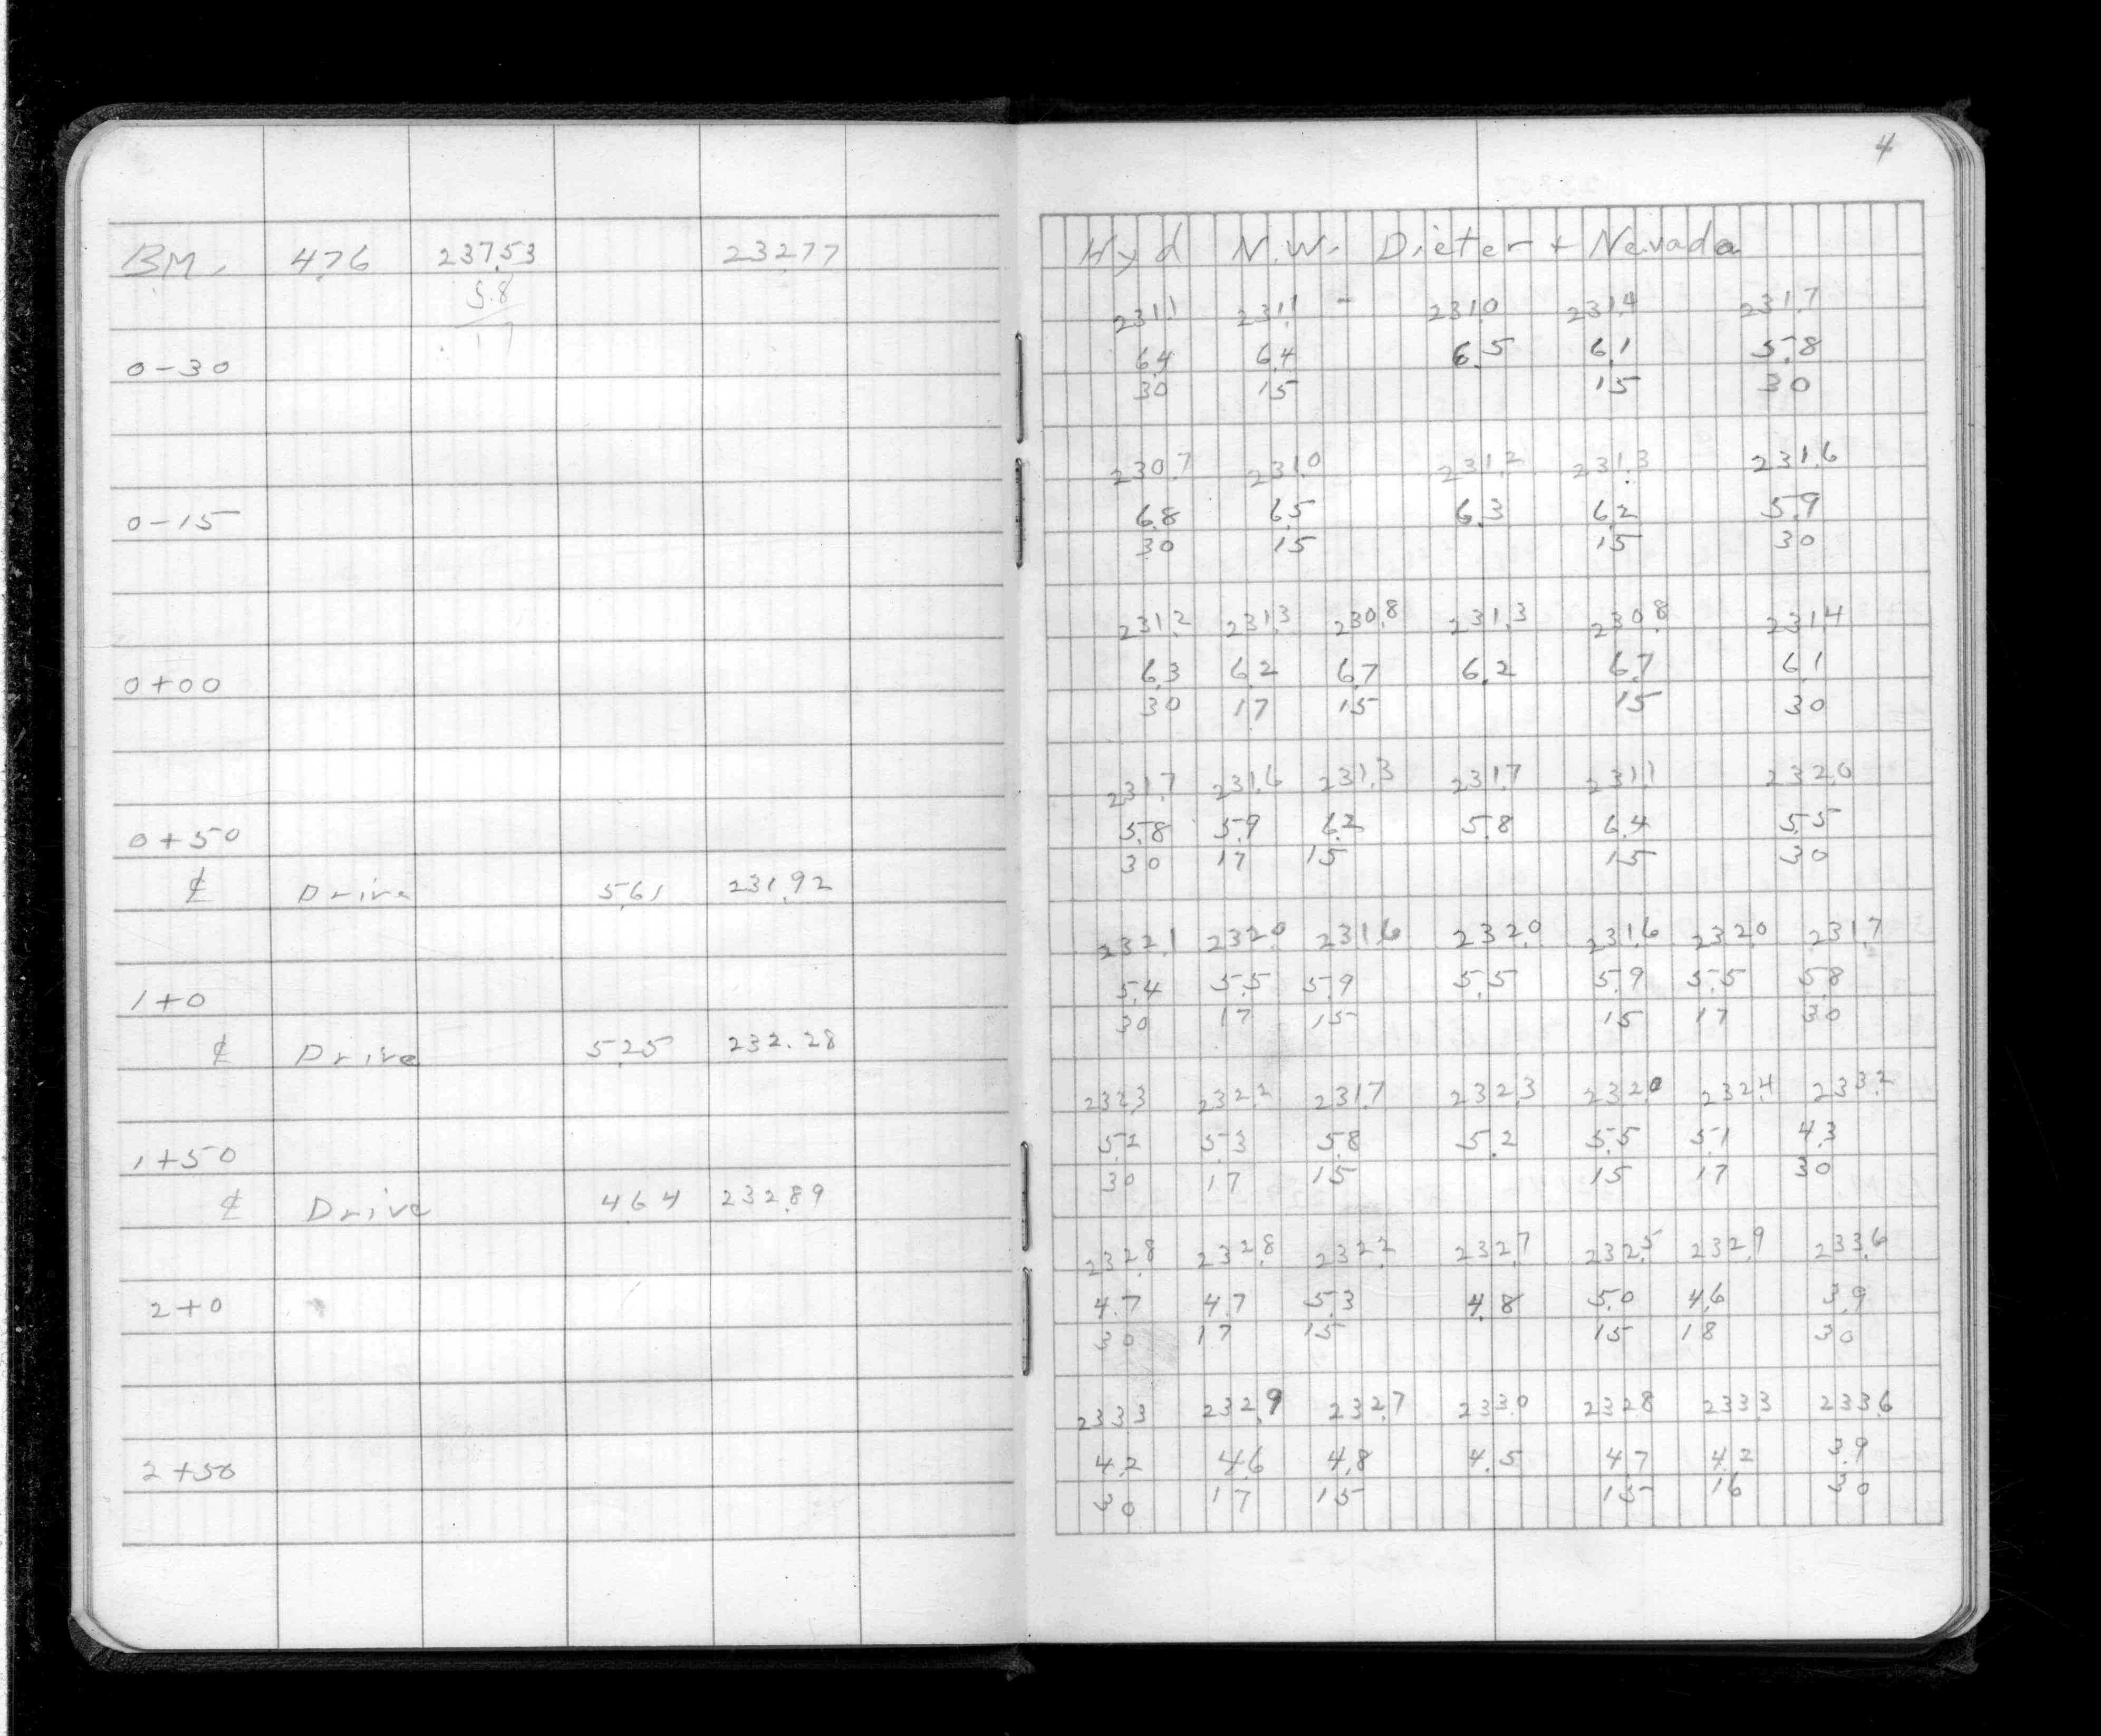 4
BM. 4.76 237.53 232.77 Hyd N.W. Dieter + Nevada
5.8 231.1 231.1 - 231.0 231.4 231.7
0-30 6.4 6.4 6.5 6.1 5.8
30 15 15 30
230.7 231.0 231.2 231.3 231.6
0-15 6.8 6.5 6.3 6.2 5.9
30 15 15 30
231.2 231.3 230.8 231.3 230.8 231.4
0+00 6.3 6.2 6.7 6.2 6.7 6.1
30 17 15 15 30
231.7 231.6 231.3 231.7 231.1 232.0
0+50 5.8 5.9 6.2 5.8 6.4 5.5
30 17 15 15 30
₵ Drive 5.61 231.92
232.1 232.0 231.6 232.0 231.6 232.0 231.7
1+0 5.4 5.5 5.9 5.5 5.9 5.5 5.8
30 17 15 15 17 30
₵ Drive 5.25 232.28
232.3 232.2 231.7 232.3 232.0 232.4 233.2
1+50 5.2 5.3 5.8 5.2 5.5 5.1 4.3
30 17 15 15 17 30
₵ Drive 4.64 232.89
232.8 232.8 232.2 232.7 232.5 232.9 233.6
2+0 4.7 4.7 5.3 4.8 5.0 4.6 3.9
30 17 15 15 18 30
233.3 232.9 232.7 233.0 232.8 233.3 233.6
2+50 4.2 4.6 4.8 4.5 4.7 4.2 3.9
30 17 15 15 16 30